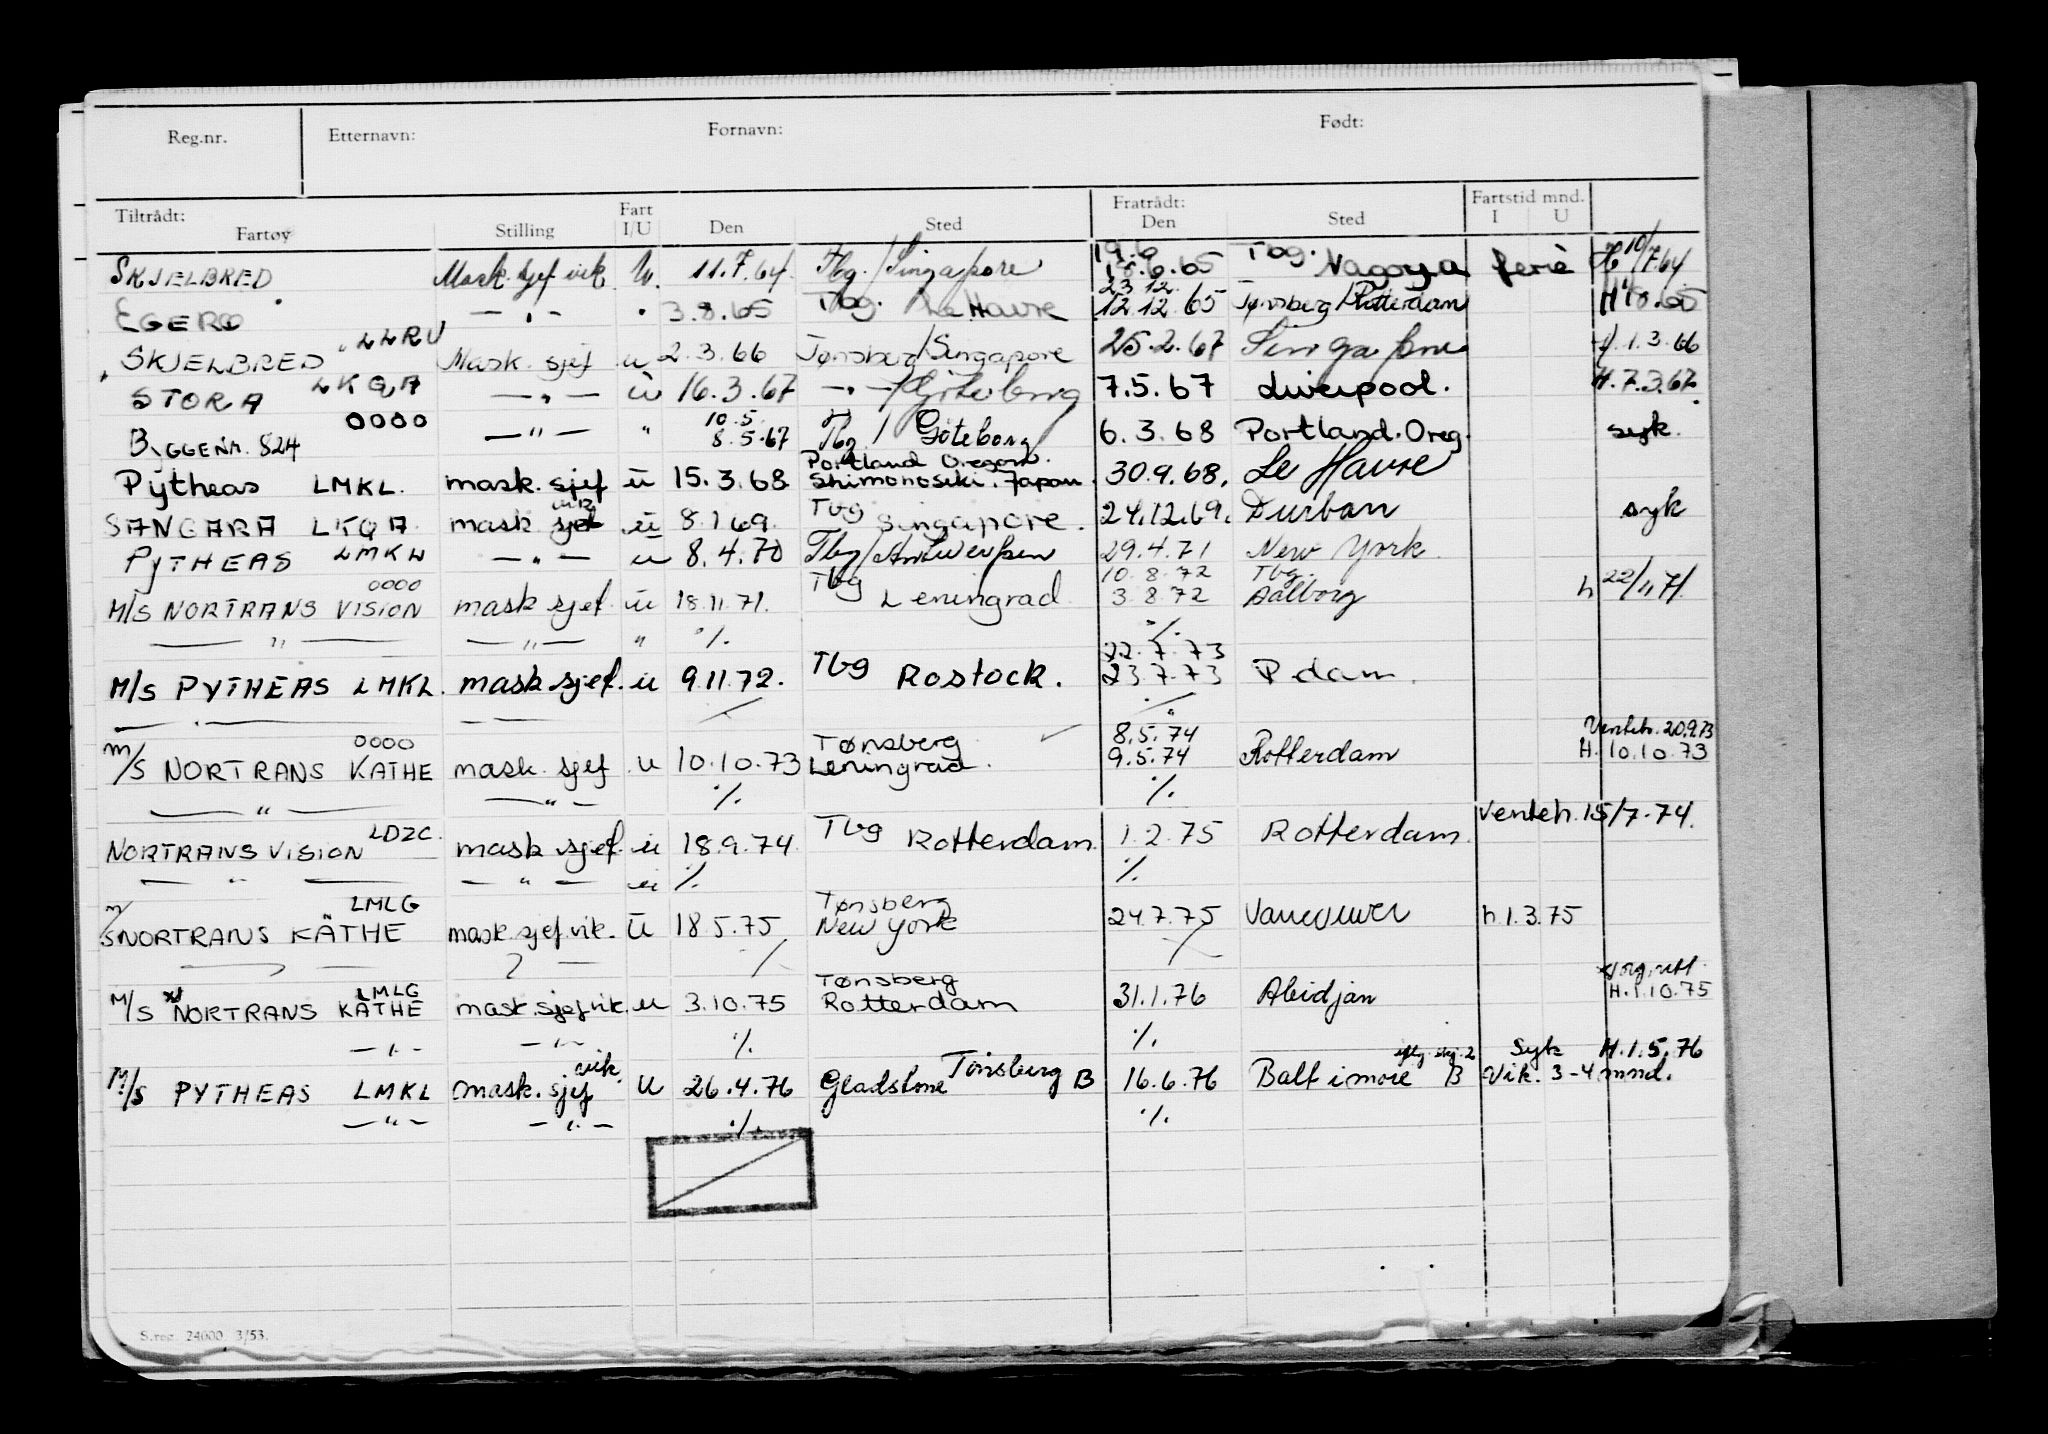 Reg.nr. Etternavn: Fornavn: Født:
Tiltrådt: Fartøy Stilling Fart I/U Den Sted Fratrådt: Den Sted Fartstid mnd. I U
19.6 Tbg.
SKJELBRED Mask. sjef vik. U. 11.7.64. Tbg./Singapore 18.6.65 Nagoya ferie H 10/7.64
23.12.
EGERØ — " — " 3.8.65 Tbg. Le Havre 12.12.65 Tønsberg/Rotterdam
LLRV
SKJELBRED Mask. sjef u 2.3.66 Tønsberg/Singapore 25.2.67 Singapore H.1.3.66
STORA LKQA — " — u 16.3.67 — " —/Göteborg 7.5.67 Liverpool. H.7.3.67.
0000 10.5.
BYGGENR. 824 — " — " 8.5.67 Tbg / Göteborg 6.3.68 Portland. Oreg. syk.
Portland Oregon.
Pytheas LMKL. mask. sjef u 15.3.68 Shimonoseki. Japan. 30.9.68. Le Havre
vik
SANGARA LKQA mask sjef u 8.1.69. Tbg Singapore. 24.12.69. Durban syk
PYTHEAS LMKL — " — u 8.4.70 Tbg/Antwerpen 29.4.71 New York.
0000 Tbg 10.8.72 Tbg.
M/S NORTRANS VISION mask sjef. u 18.11.71. Leningrad 3.8.72 Aalborg h 22/11 71.
— " — — " — " ./. ./.
22.7.73
M/S PYTHEAS LMKL. mask sjef. u 9.11.72. Tbg Rostock. 23.7.73 Rdam.
0000 Tønsberg 8.5.74 Venteh. 20.9.73
M/S NORTRANS KATHE mask. sjef u 10.10.73 Leningrad. 9.5.74 Rotterdam H. 10.10.73
— " — — " — ./. ./.
Venteh. 15/7.74.
NORTRANS VISION LDZC. mask sjef. u 18.9.74. Tbg Rotterdam. 1.2.75 Rotterdam.
— " — — " — u ./. ./.
LMLG Tønsberg
M/S NORTRANS KÄTHE mask. sjef. vik. U 18.5.75 New York 24.7.75 Vancouver h.1.3.75
LMLG Tønsberg
M/S NORTRANS KÄTHE mask. sjef vik. u 3.10.75 Rotterdam 31.1.76 Abidjan H.1.10.75
— " — — " — ./. ./.
vik. Syk H.1.5.76
M/S PYTHEAS LMKL mask. sjef U 26.4.76 Gladstone Tønsberg B 16.6.76 Baltimore B Vik. 3-4 mnd.
— " — — " — ./. ./.
S.reg. 24000 3/53.